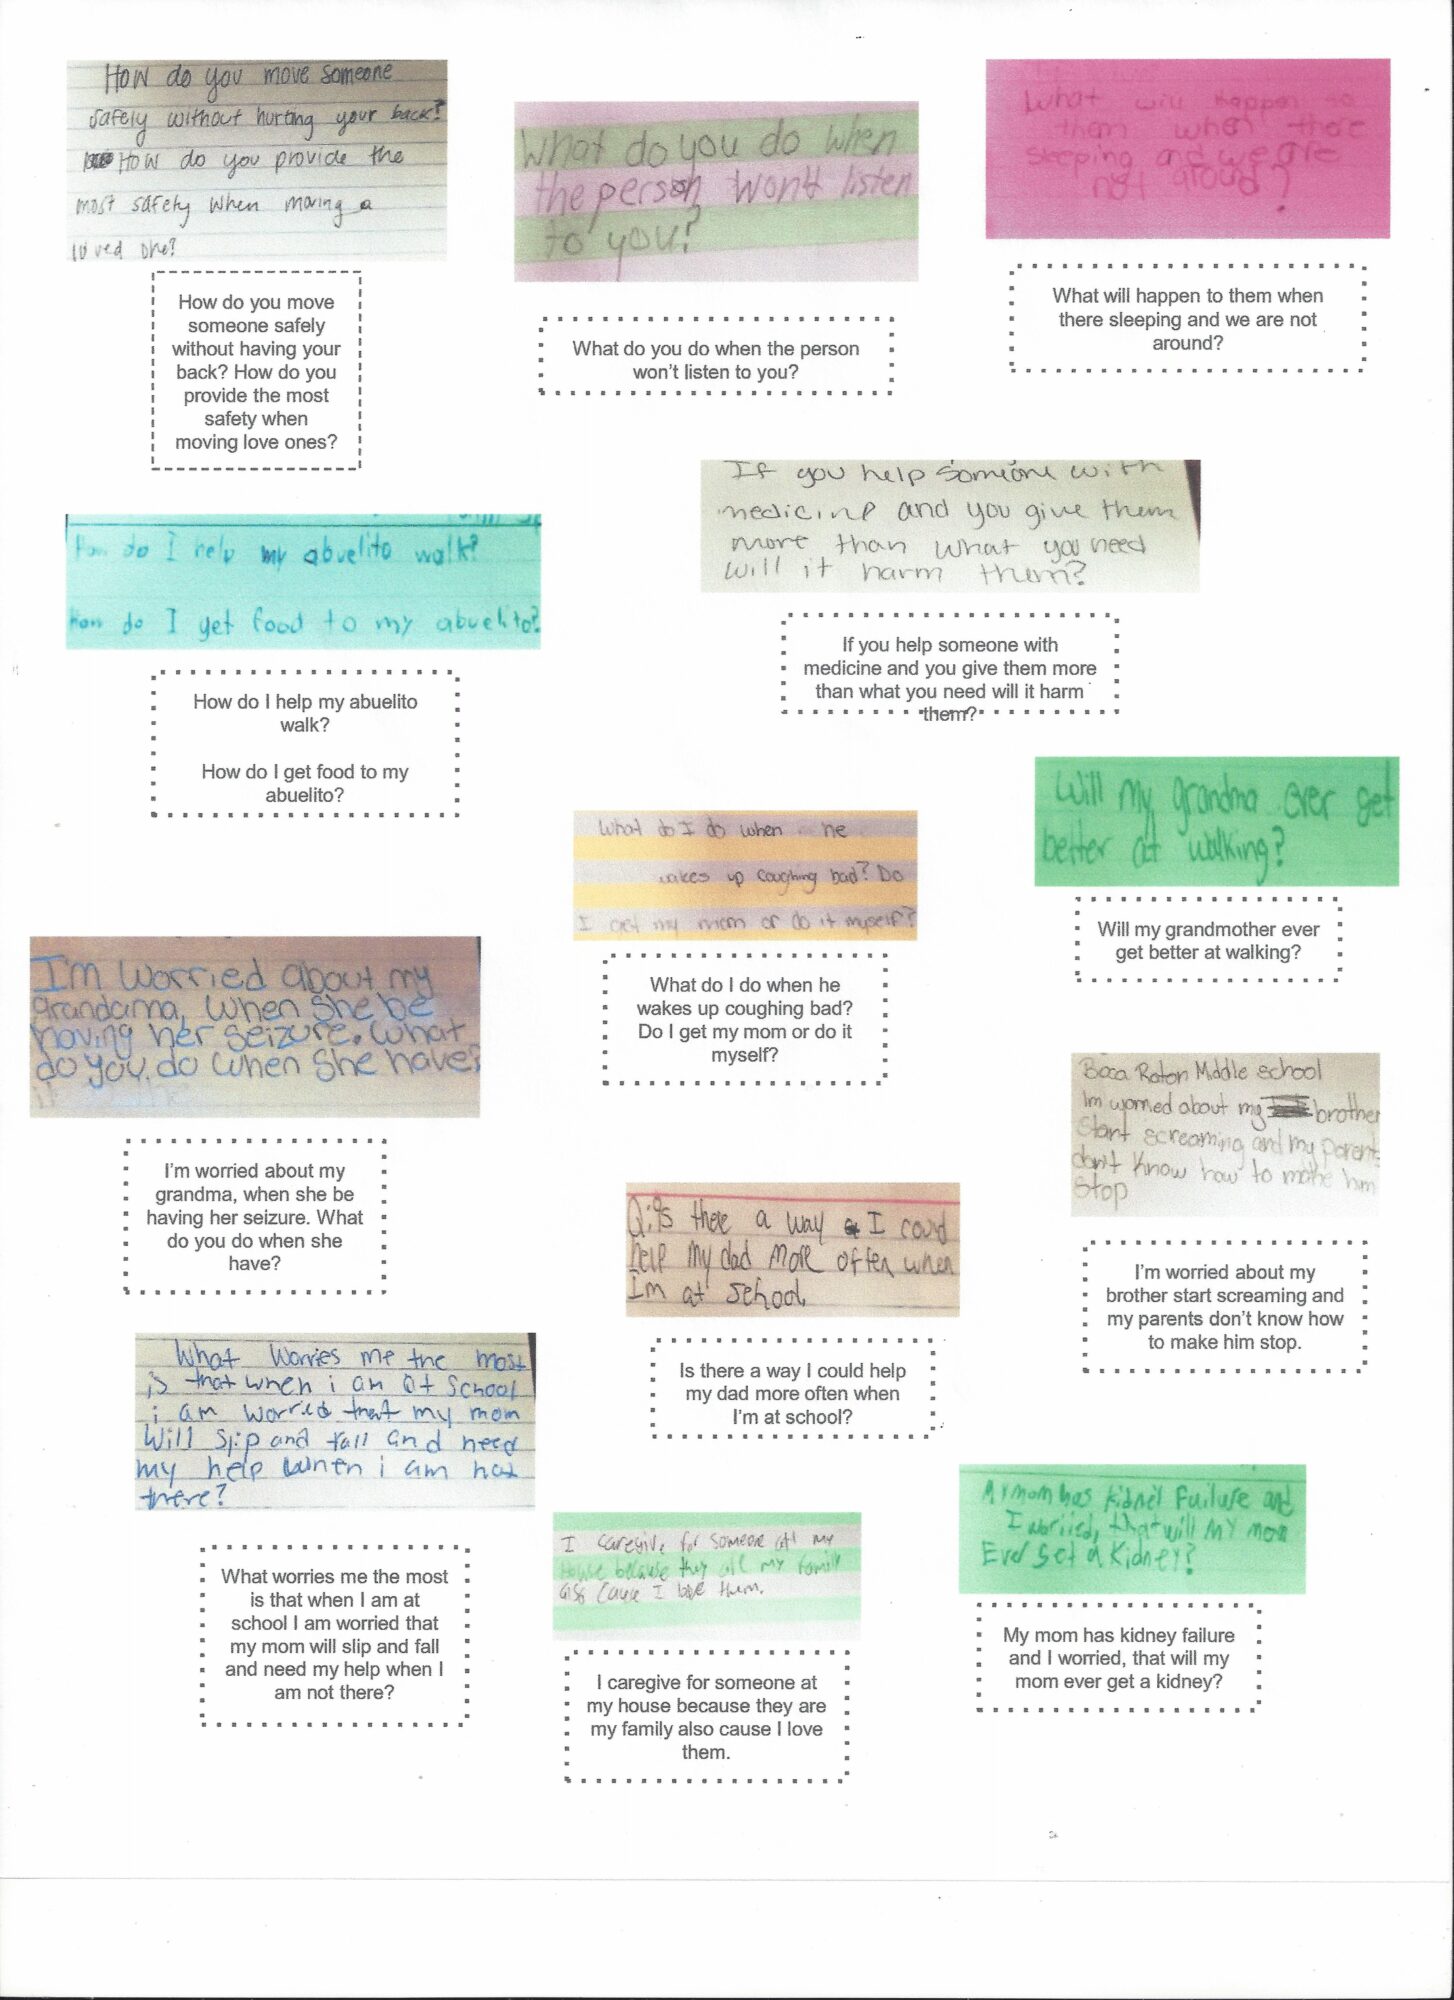 How do you move someone
safely without hurting your back?
How do you provide the
most safety when moving a
loved one?
How do you move
someone safely
without having your
back? How do you
provide the most
safety when
moving love ones?
What do you do when
the person wont listen
to you?
What do you do when the person
won't listen to you?
What will happen to
them when there
sleeping and we are
not aroud?
What will happen to them when
there sleeping and we are not
around?
How do I help my abuelito walk?
How do I get food to my abuelito?
How do I help my abuelito
walk?
How do I get food to my
abuelito?
If you help someone with
medicine and you give them
more than what you need
will it harm them?
If you help someone with
medicine and you give them more
than what you need will it harm
them?
Will my grandma ever get
better at walking?
Will my grandmother ever
get better at walking?
What do I do when he
wakes up coughing bad? Do
I get my mom or do it myself?
What do I do when he
wakes up coughing bad?
Do I get my mom or do it
myself?
I'm worried about my
grandama, when she be
having her seizure. What
do you do when she have
it
I'm worried about my
grandma, when she be
having her seizure. What
do you do when she
have?
Boca Raton Middle school
Im worried about my brother
start screaming and my parents
don't know how to make him
stop
I'm worried about my
brother start screaming and
my parents don't know how
to make him stop.
Q: Is there a way I could
help my dad more often when
I'm at school.
Is there a way I could help
my dad more often when
I'm at school?
What worries me the most
is that when i am at school
i am worried that my mom
will slip and fall and need
my help when i am not
there?
What worries me the most
is that when I am at
school I am worried that
my mom will slip and fall
and need my help when I
am not there?
I caregive for someone at my
house because they are my family
also cause I love them.
I caregive for someone at
my house because they are
my family also cause I love
them.
My mom has kidnei failure and
I worried, that will my mom
Ever get a kidney?
My mom has kidney failure
and I worried, that will my
mom ever get a kidney?